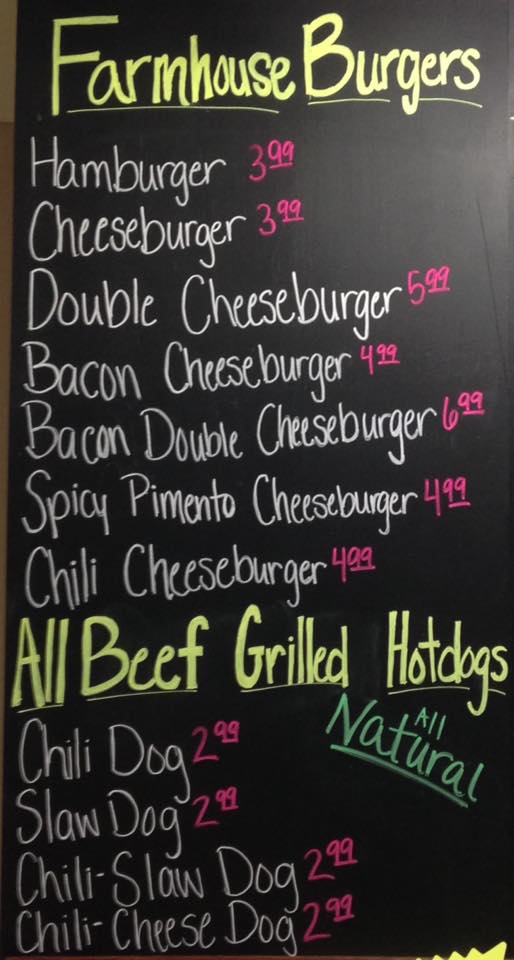 Farmhouse Burgers
Hamburger 3.99
Cheeseburger 3.99
Double Cheeseburger 5.99
Bacon Cheeseburger 4.99
Bacon Double Cheeseburger 6.99
Spicy Pimento Cheeseburger 4.99
Chili Cheeseburger 4.99
All Beef Grilled Hotdogs
All Natural
Chili Dog 2.99
Slaw Dog 2.99
Chili-Slaw Dog 2.99
Chili-Cheese Dog 2.99